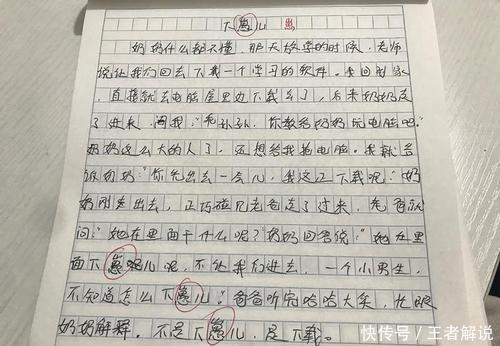 下崽儿 出
奶奶什么都不懂，那天放学的时候，老师
说让我们回去下载一个学习的软件。我回到家
，直接就去电脑屋里边下载去了，后来奶奶走
了进来，问我："乖孙子，你教给奶奶玩电脑吧。"
奶奶这么大的人了，还想给我抢电脑。我就告
诉奶奶："你先出去一会儿，我这正下载呢"奶
奶刚走出去，正巧碰见老爸走了过来，老爸就
问："她在里面干什么呢？"奶奶回答说："她在里
面下崽呢儿呢，不让我们进去，一个小男生，
不知道怎么下崽儿"爸爸听完哈哈大笑，忙跟
奶奶解释，不是下崽儿，是下载。
快传号／王者解说